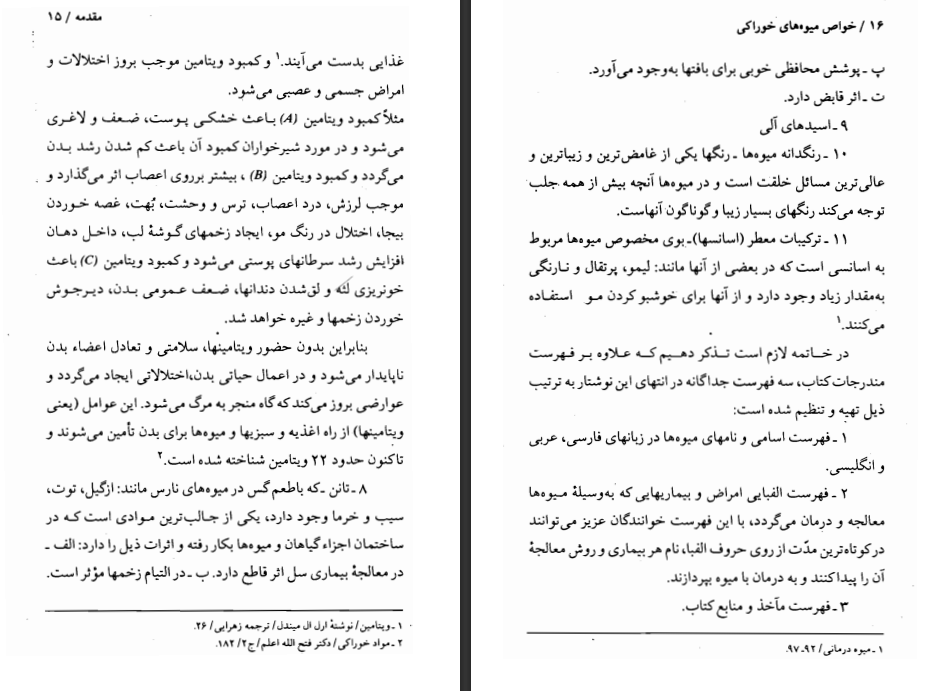 مقدمه / ۱۵
غذایی بدست می‌آیند.۱ و کمبود ویتامین موجب بروز اختلالات و
امراض جسمی و عصبی می‌شود.
مثلاً کمبود ویتامین (A) باعث خشکی پوست، ضعف و لاغری
می‌شود و در مورد شیرخواران کمبود آن باعث کم شدن رشد بدن
می‌گردد و کمبود ویتامین (B) ، بیشتر برروی اعصاب اثر می‌گذارد و
موجب لرزش، درد اعصاب، ترس و وحشت، بُهت، غصه خوردن
بیجا، اختلال در رنگ مو، ایجاد زخمهای گوشهٔ لب، داخل دهان
افزایش رشد سرطانهای پوستی می‌شود و کمبود ویتامین (C) باعث
خونریزی لثه و لق‌شدن دندانها، ضعف عمومی بدن، دیرجوش
خوردن زخمها و غیره خواهد شد.
بنابراین بدون حضور ویتامینها، سلامتی و تعادل اعضاء بدن
ناپایدار می‌شود و در اعمال حیاتی بدن،اختلالاتی ایجاد می‌گردد و
عوارضی بروز می‌کند که گاه منجر به مرگ می‌شود. این عوامل (یعنی
ویتامینها) از راه اغذیه و سبزیها و میوه‌ها برای بدن تأمین می‌شوند و
تاکنون حدود ۲۲ ویتامین شناخته شده است.۲
۸ ـ تانن ـ که باطعم گس در میوه‌های نارس مانند: ازگیل، توت،
سیب و خرما وجود دارد، یکی از جالب‌ترین موادی است که در
ساختمان اجزاء گیاهان و میوه‌ها بکار رفته و اثرات ذیل را دارد: الف ـ
در معالجهٔ بیماری سل اثر قاطع دارد. ب ـ در التیام زخمها مؤثر است.
۱ ـ ویتامین / نوشتهٔ ارل ال میندل / ترجمه زهرایی / ۲۶.
۲ ـ مواد خوراکی / دکتر فتح الله اعلم / ج۲ / ۱۸۲.
۱۶ / خواص میوه‌های خوراکی
پ ـ پوشش محافظی خوبی برای بافتها به‌وجود می‌آورد.
ت ـ اثر قابض دارد.
۹ ـ اسیدهای آلی
۱۰ ـ رنگدانه میوه‌ها ـ رنگها یکی از غامض‌ترین و زیباترین و
عالی‌ترین مسائل خلقت است و در میوه‌ها آنچه بیش از همه جلب
توجه می‌کند رنگهای بسیار زیبا و گوناگون آنهاست.
۱۱ ـ ترکیبات معطر (اسانسها)ـ بوی مخصوص میوه‌ها مربوط
به اسانسی است که در بعضی از آنها مانند: لیمو، پرتقال و نارنگی
به‌مقدار زیاد وجود دارد و از آنها برای خوشبو کردن مو استفاده
می‌کنند.۱
در خاتمه لازم است تذکر دهیم که علاوه بر فهرست
مندرجات کتاب، سه فهرست جداگانه در انتهای این نوشتار به ترتیب
ذیل تهیه و تنظیم شده است:
۱ ـ فهرست اسامی و نامهای میوه‌ها در زبانهای فارسی، عربی
و انگلیسی.
۲ ـ فهرست الفبایی امراض و بیماریهایی که به‌وسیلهٔ میوه‌ها
معالجه و درمان می‌گردد، با این فهرست خوانندگان عزیز می‌توانند
درکوتاه‌ترین مدّت از روی حروف الفبا، نام هر بیماری و روش معالجهٔ
آن را پیدا کنند و به درمان با میوه بپردازند.
۳ ـ فهرست مآخذ و منابع کتاب.
۱ ـ میوه درمانی / ۹۲ـ۹۷.